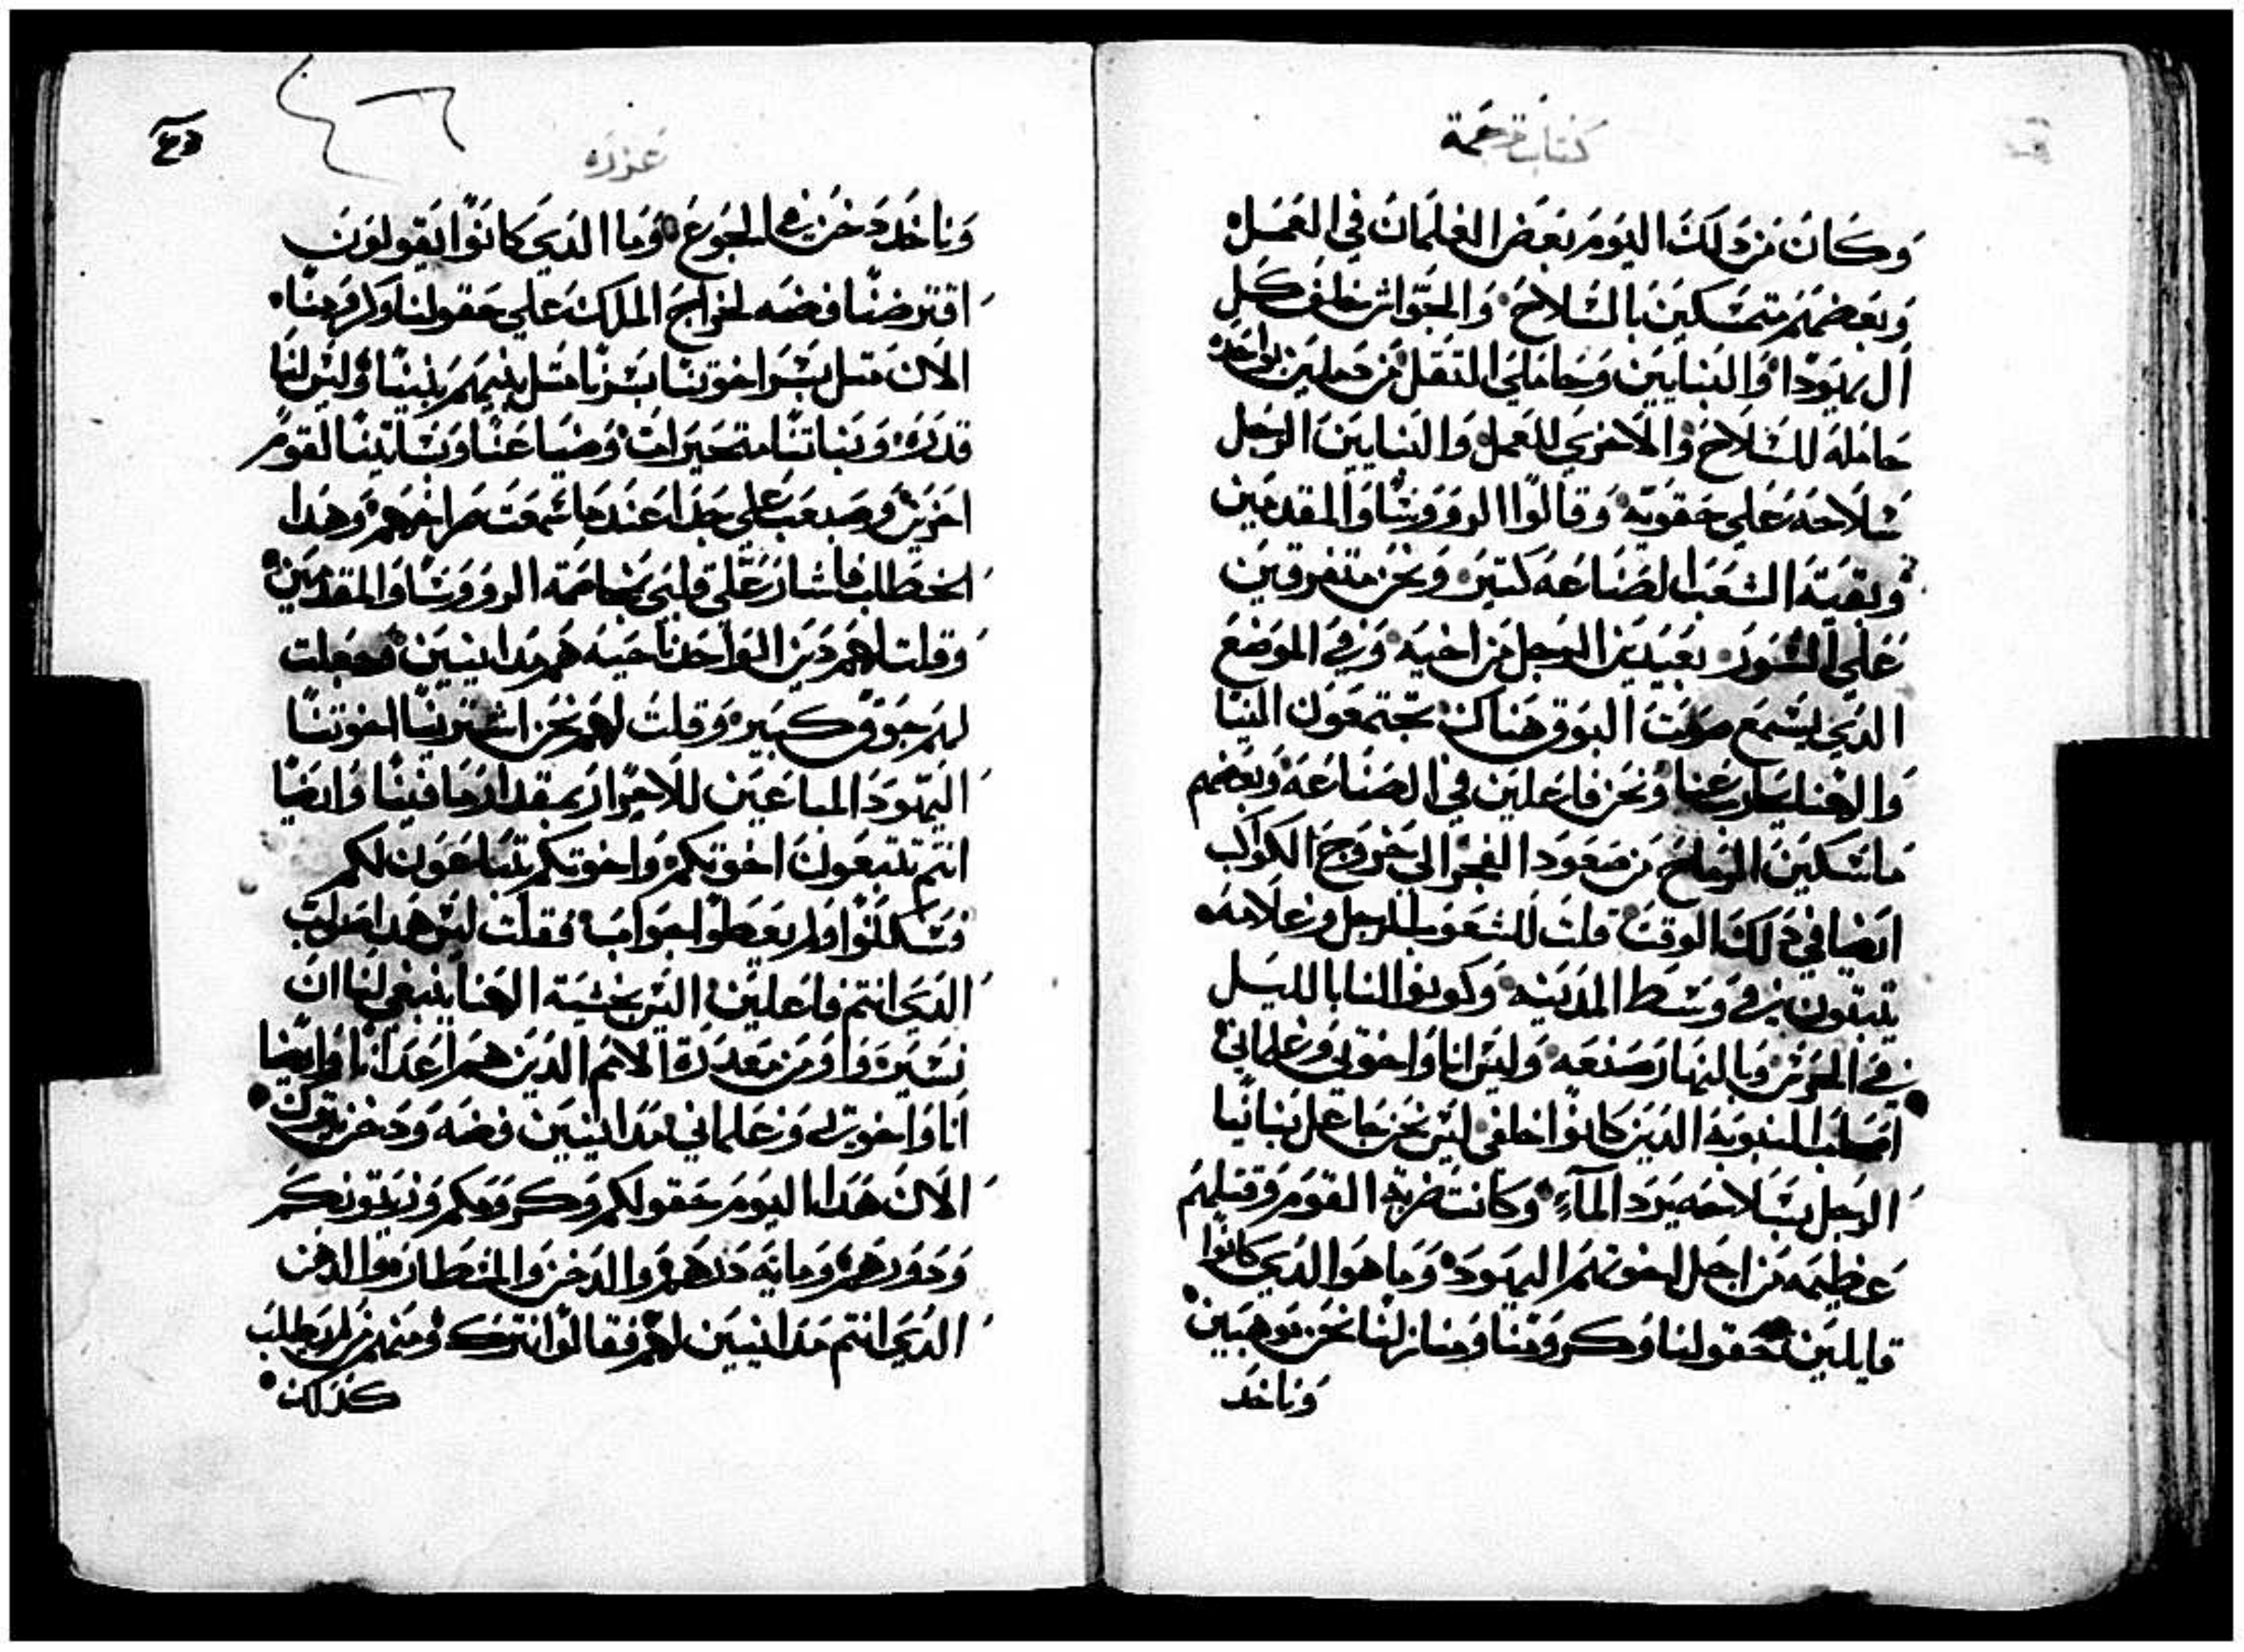 كتاب ترجمة
وكان من دلك اليوم بعض الغلمان في العمل
وبعضهم متمسكين بالسلاح والجواشن خلف كل
ال يهودا والبنايين وحاملي التقل من حملين بواحده
حامله للسلاح والاخري للعمل والبنايين الرجل
سلاحه علي حقويه وقالوا الروووسا والمقدمين
وبقية الشعب الصناعه كتير ونحن متفرقين
علي السور بعيدين الرجل من اخيه وفي الموضع
الدي يسمع صوت البوق هناك تجتمعون الينا
والهنا يحارب عنا ونحن فاعلين في الصناعه وبعضهم
ماسكين الرماح من صعود الفجر الي خروج الكواكب
ايضا في دلك الوقت قلت للشعب الرجل وغلامه
تبيتون في وسط المدينه وكونوا لنا بالليل
في الحرس وبالنهار صنعه وليس انا واخوتي وغلماني
اصحاب النوبه الدين كانوا خلفي ليس نحن جاعل بناتنا
الرجل بسلاحه يرد المآء وكانت ضربة القوم وقتلهم
عظيمه من اجل اخوتهم اليهود وما هوا الدي كانوا
قايلين حقولنا وكرومنا ومنازلنا نحن موهبين
وناخد
عزره
وناخد دخن في الجوع وما الدي كانوا يقولون
اقترضنا فضه لخراج الملك علي حقولنا وكرومنا
الان متل بشر اخوتنا بشرنا متل بنيهم بنينا وليس لنا
قدره وبناتنا متحيرات وضياعنا وبساتيننا لقوم
اخرين وصعب علي جدا عندما سمعت صراخهم وهدا
الخطاب فاشار علي قلبي بخاصمة الروووسا والمقدمين
وقلت لهم دين الواحد ناحيه هم مداينيين فجعلت
لهم جوق كبير وقلت لهم نحن اشترينا اخوتنا
اليهود المباعين للاحرار بمقدار ما فينا وايضا
انتم تتبعون اخوتكم واخوتكم تتباعون لكم
فسكتوا ولم يعطوا جواب فقلت ليس هدا صواب
الدي انتم فاعلين اليس بخشية الهنا ينبغي لنا ان
نسير ومن معدرة الامم الدين هم اعدانا وايضا
انا واخوتي وغلماني مداينيين فضه ودخن نترك
الان هدا اليوم حقولكم وكرومكم وزيتونكم
ودورهم وماية درهم والدخن والمنطار والدهن
الدي انتم مداينيين لهم فقالوا نترك ومنهم لم يطلب
كدلك